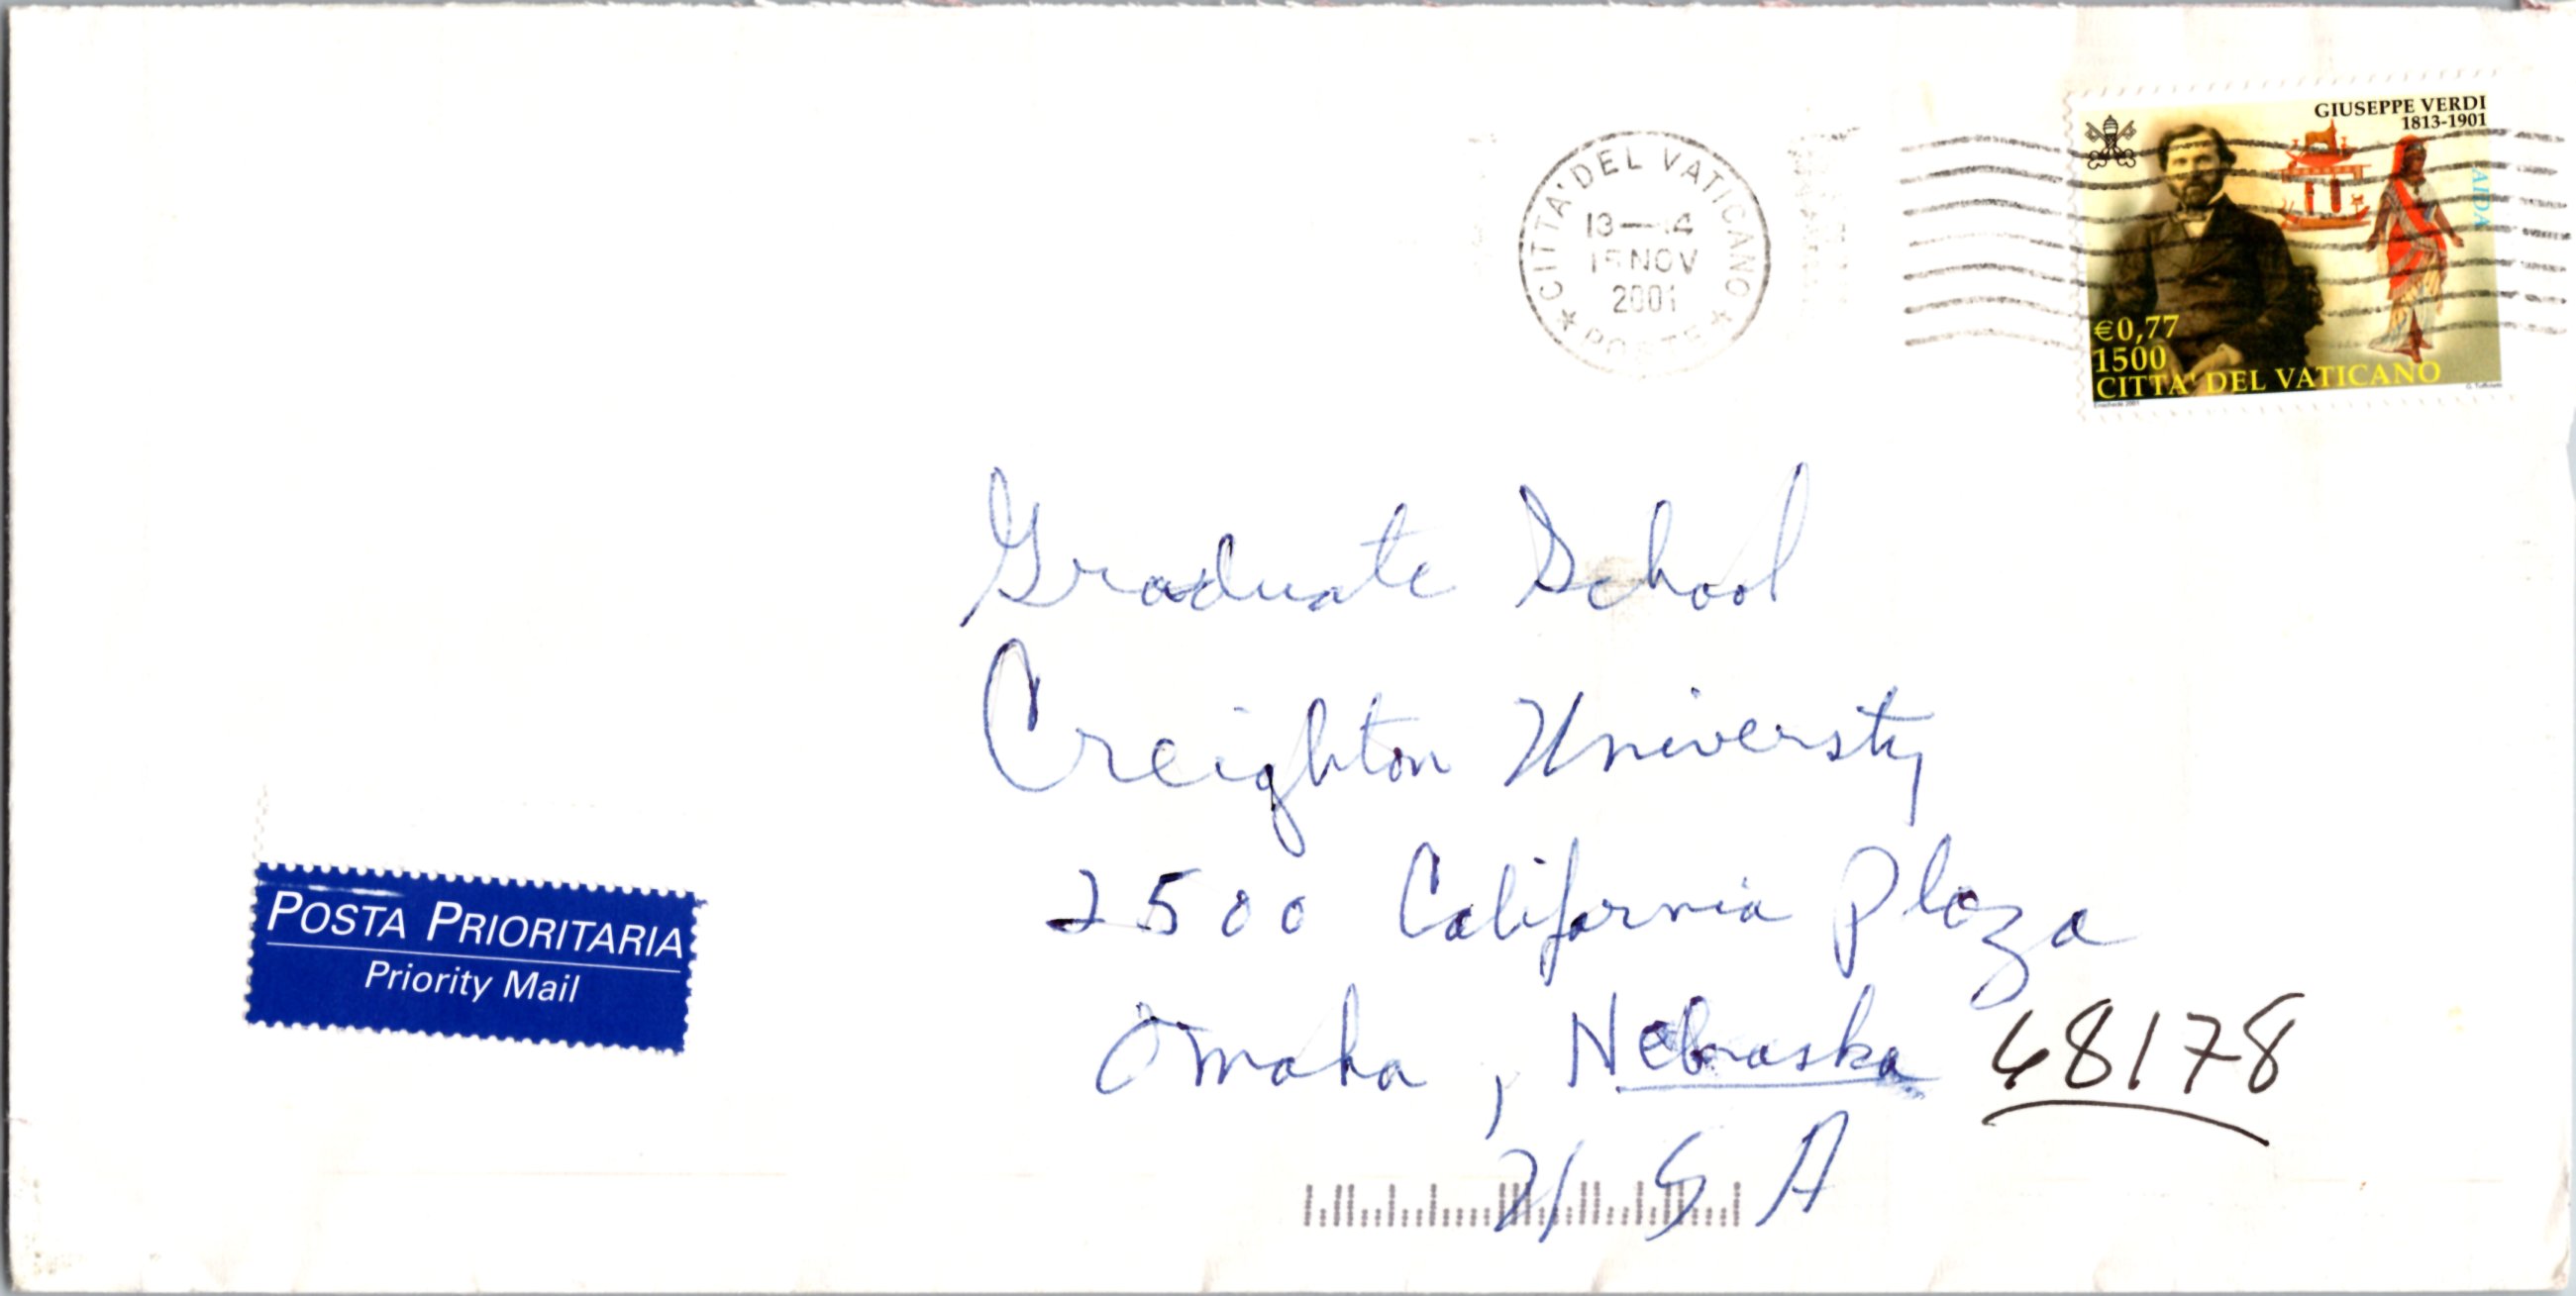 GIUSEPPE VERDI
1813-1901
AIDA
€0,77
1500
CITTA' DEL VATICANO
CITTA' DEL VATICANO
13—14
NOV
2001
POSTE
Graduate School
Creighton Universty
2500 California Plaza
Omaha, Nebraska 68178
U S A
POSTA PRIORITARIA
Priority Mail